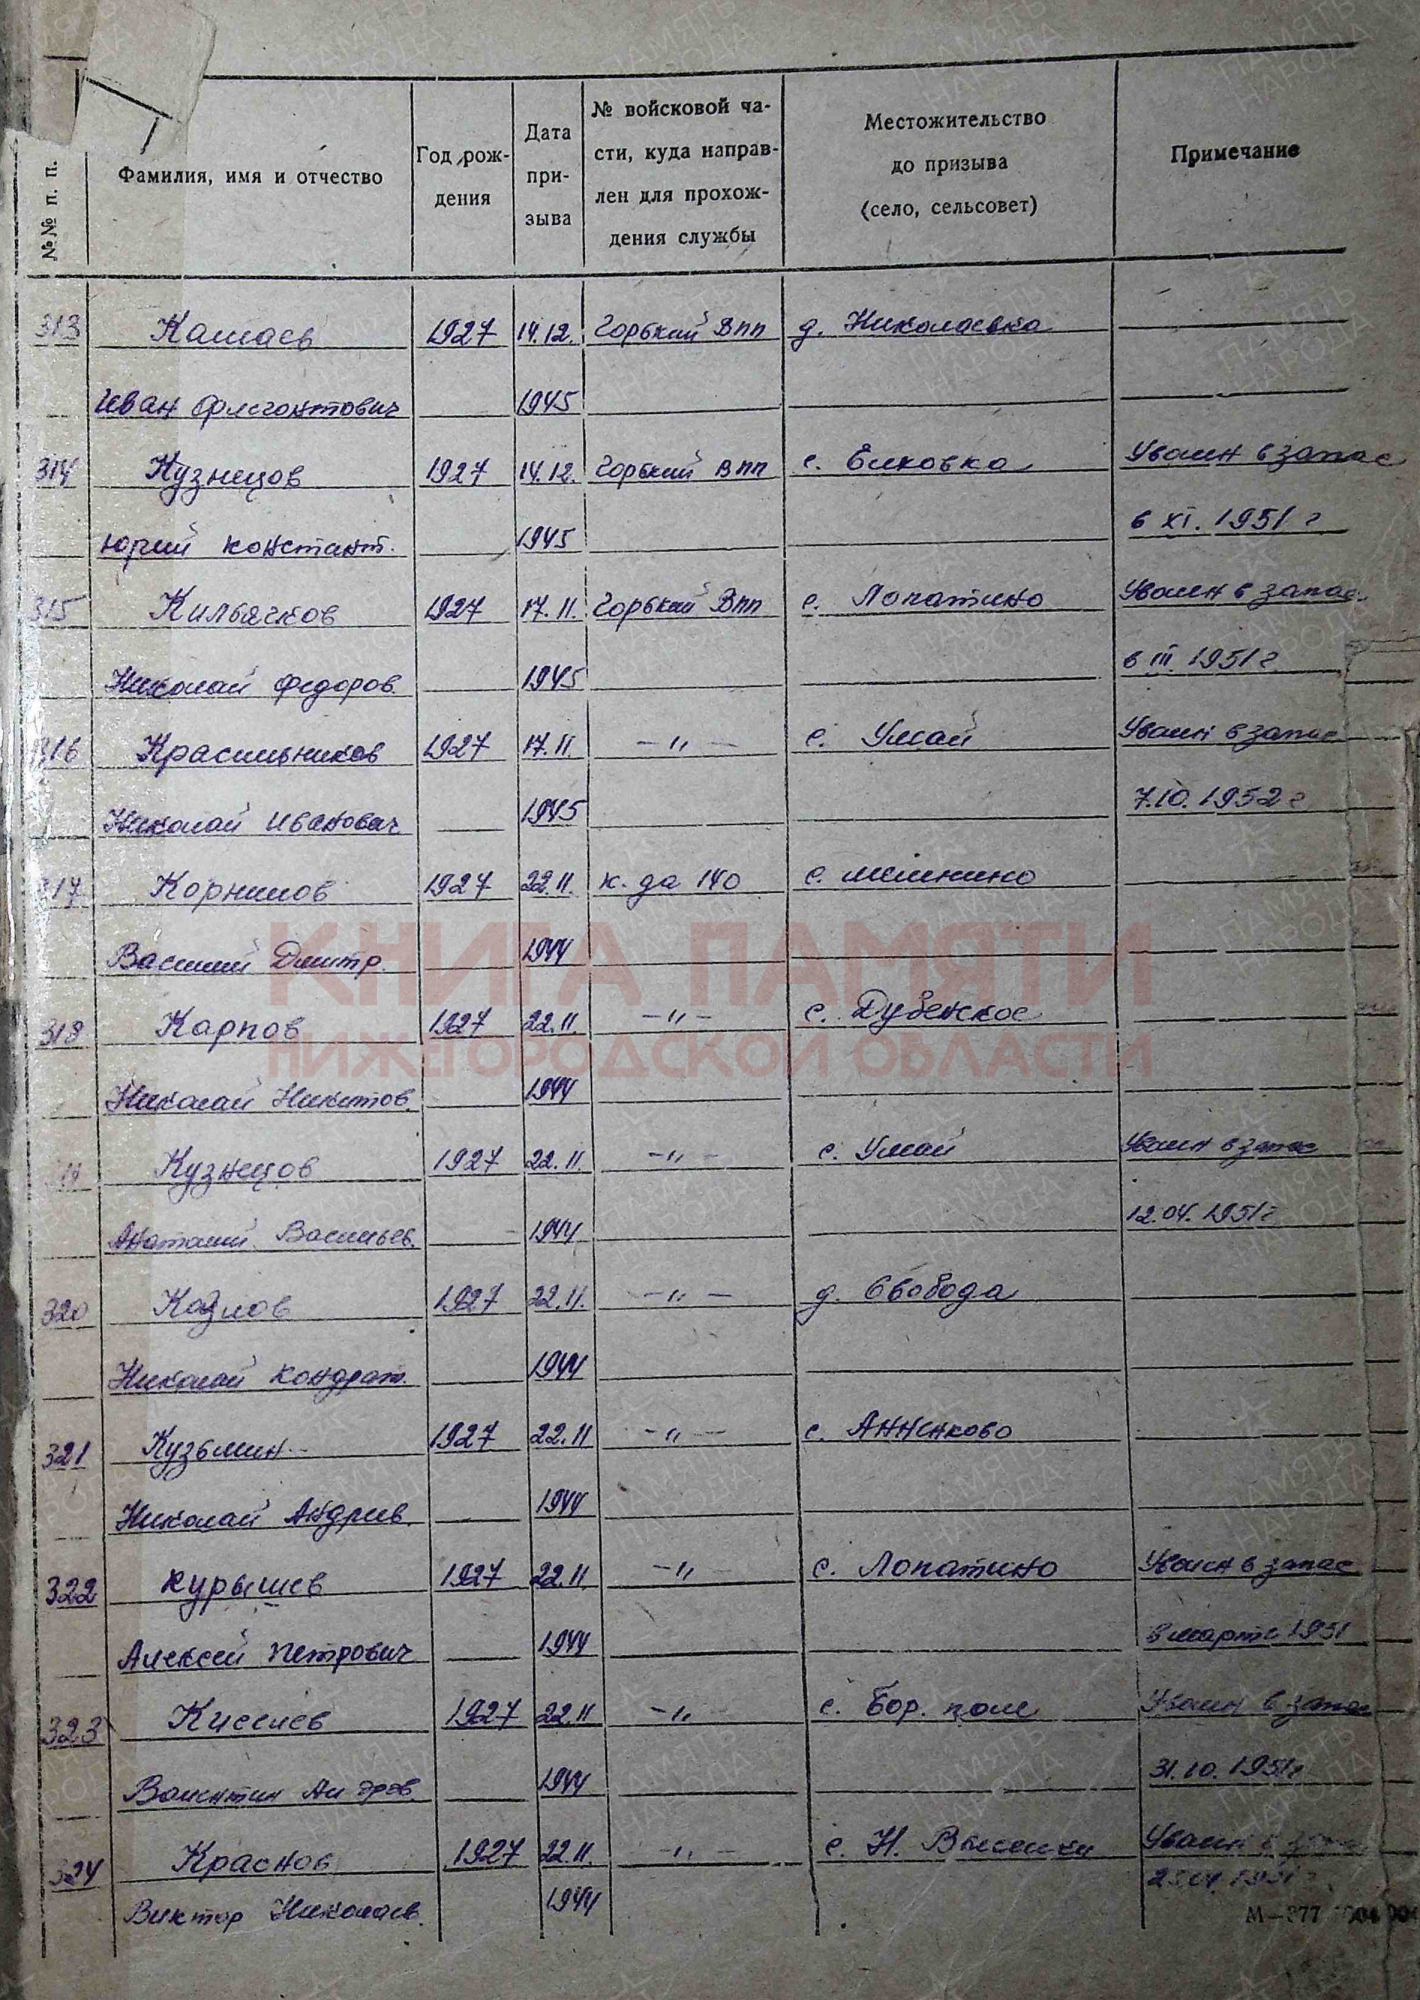 №№ п. п.
Фамилия, имя и отчество
Год рож-
дения
Дата
при-
зыва
№ войсковой ча-
сти, куда направ-
лен для прохож-
дения службы
Местожительство
до призыва
(село, сельсовет)
Примечание
313 Камаев 1927 14.12. Горький ВПП д. Николаевка
Иван Флегонтович 1945
314 Кузнецов 1927 14.12. Горький ВПП с. Елховка Уволен в запас
Юрий Констант. 1945 в XI. 1951 г
315 Кильячков 1927 17.11. Горький ВПП с. Лопатино Уволен в запас
Николай Федоров. 1945 в III. 1951 г
316 Красильников 1927 17.11. —〃— с. Умай Уволен в запас
Николай Иванович 1945 7.10.1952 г
317 Корнилов 1927 22.11. к-да 140 с.
Василий Дмитр. 1944
КНИГА ПАМЯТИ
318 Карпов 1927 22.11. —〃— с. Дубенское
НИЖЕГОРОДСКОЙ ОБЛАСТИ
Николай Никитов. 1944
Кузнецов 1927 22.11. —〃— с. Умай Уволен в запас
Анатолий Васильев. 1944 12.04.1951 г
320 Козлов 1927 22.11. —〃— д. Свобода
Николай Кондрат. 1944
321 Кузьмин 1927 22.11 —〃— с. Анненково
Николай Андреев. 1944
322 Курышев 1927 22.11 —〃— с. Лопатино Уволен в запас
Алексей Петрович 1944 в марте 1951
323 Киселев 1927 22.11 —〃— с. Бор. поле Уволен в запас
Валентин Андреев. 1944 31.10.1951 г
324 Краснов 1927 22.11. —〃— с. Н. Выселки Уволен в запас
Виктор Николаев. 1944
М—377